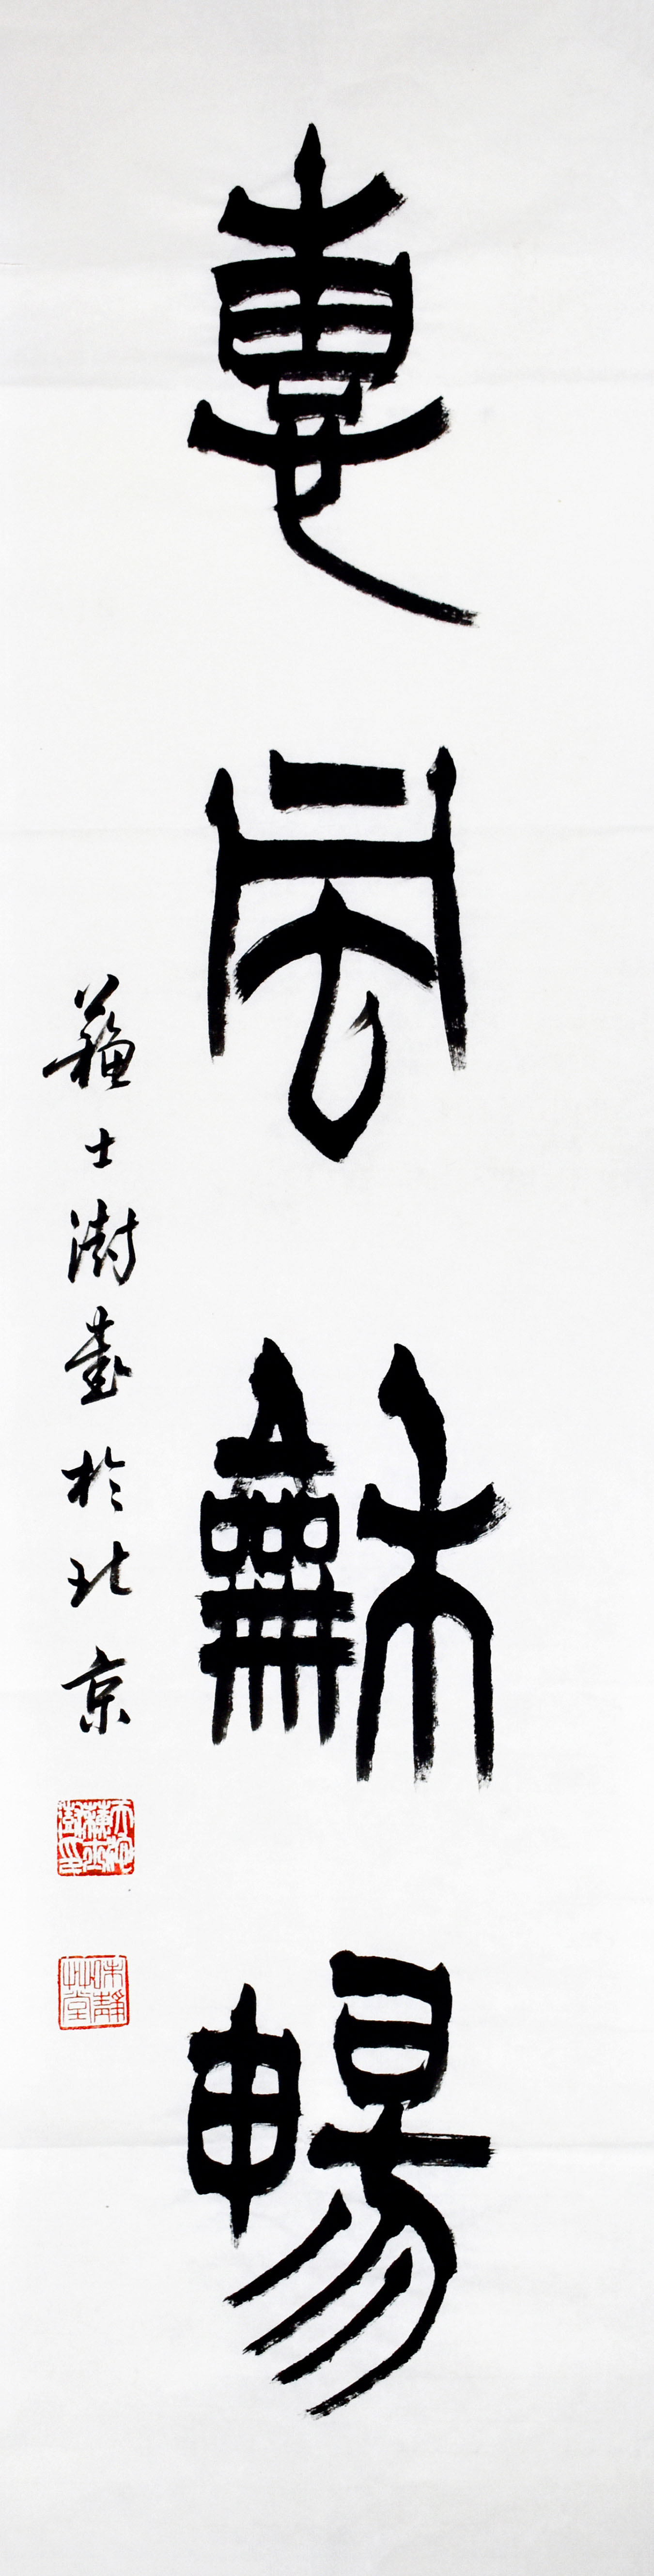 惠風龢暢
蘇士澍書於北京